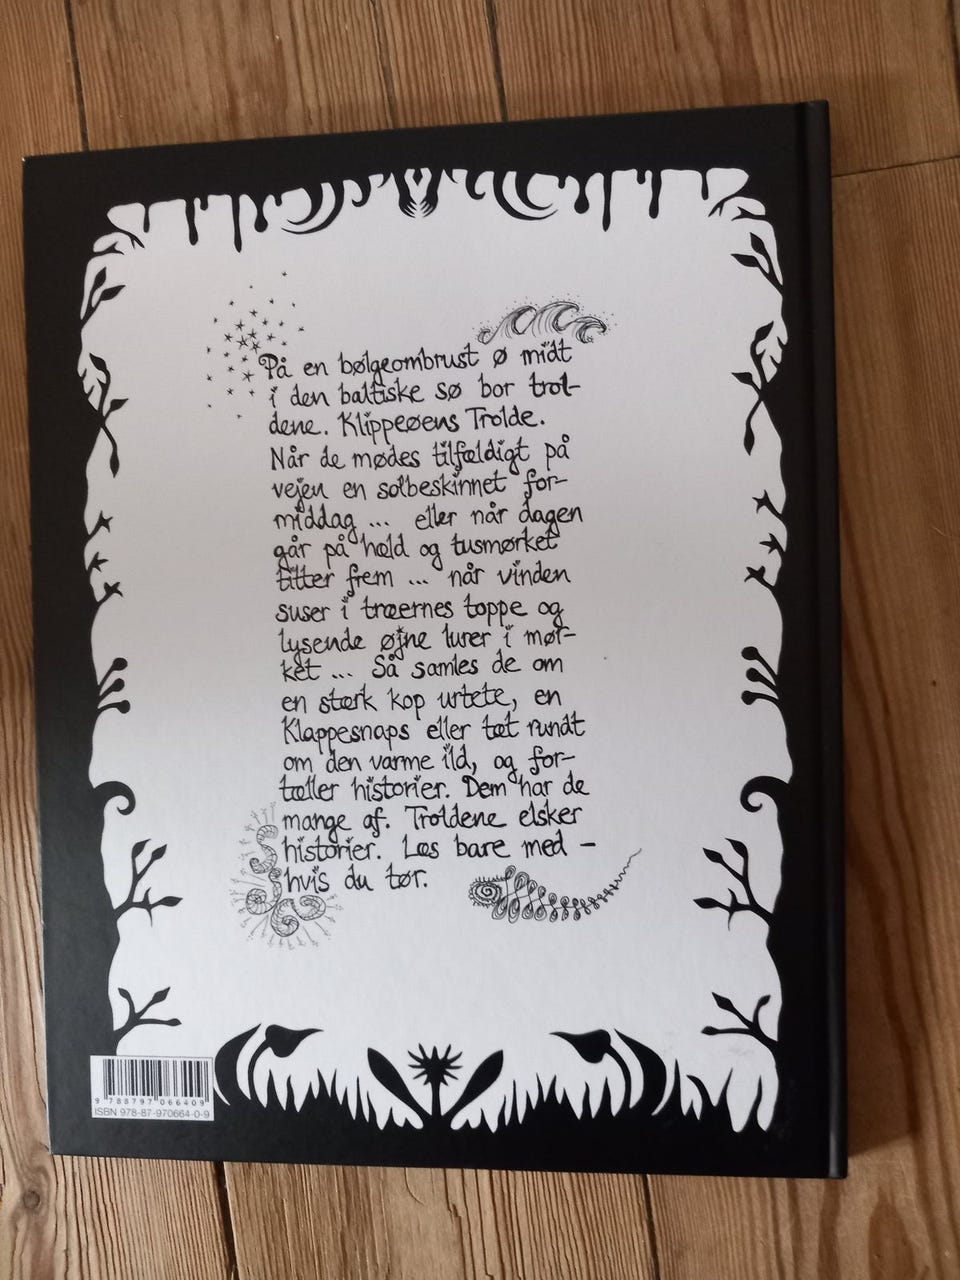 På en bølgeombrust ø midt
i den baltiske sø bor trol-
dene. Klippeøens Trolde.
Når de mødes tilfældigt på
vejen en solbeskinnet for-
middag ... eller når dagen
går på hæld og tusmørket
titter frem ... når vinden
suser i træernes toppe og
lysende øjne lurer i mør-
ket ... Så samles de om
en stærk kop urtete, en
Klappesnaps eller tæt rundt
om den varme ild, og for-
tæller historier. Dem har de
mange af. Troldene elsker
historier. Læs bare med -
hvis du tør.
9 788797 066409
ISBN 978-87-970664-0-9